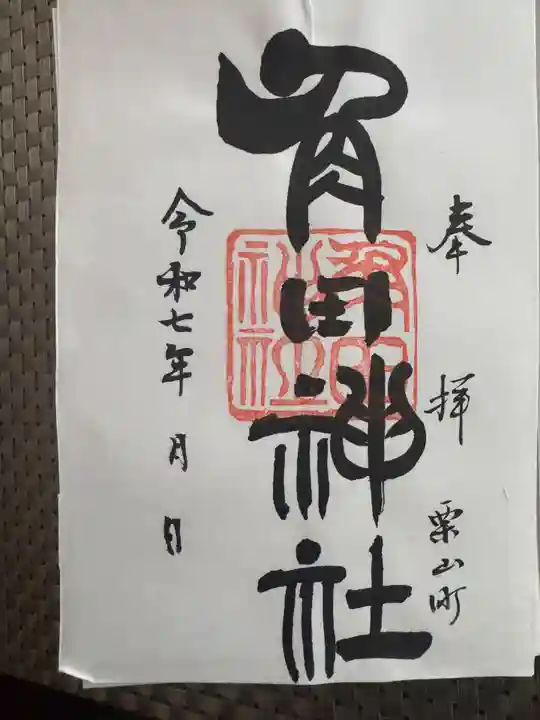 奉拝 栗山町
角田神社
令和七年 月 日